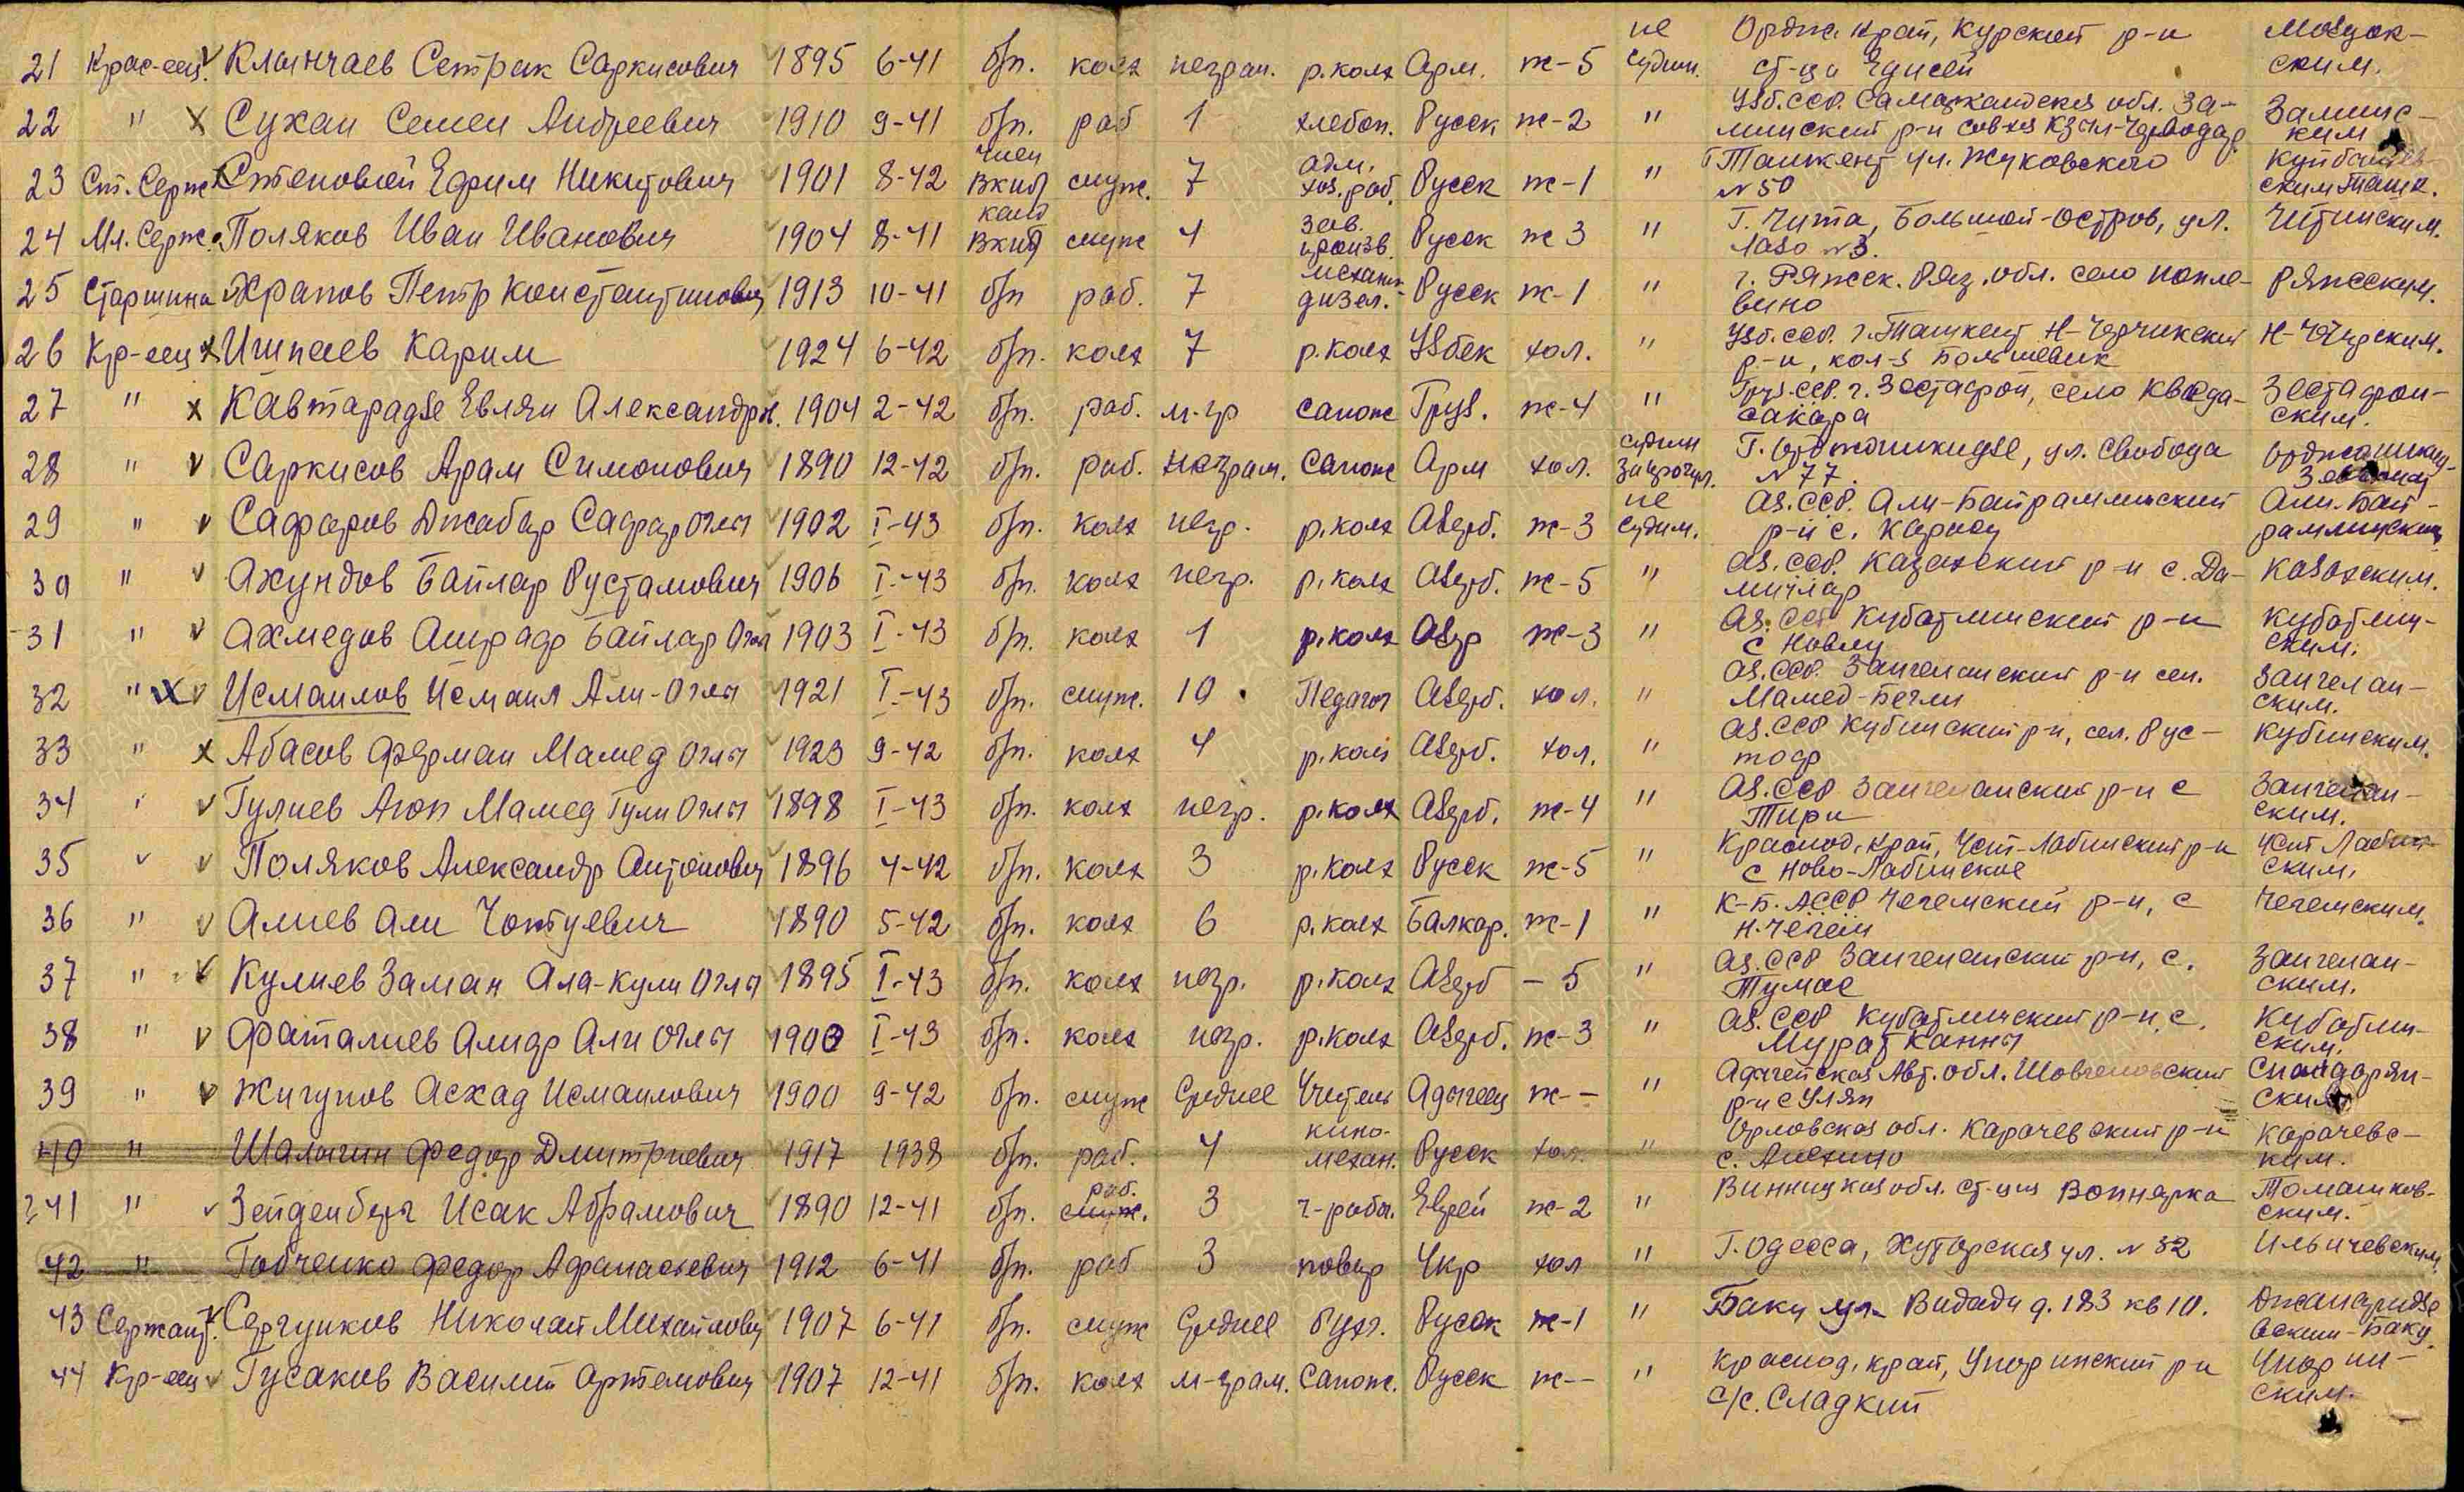 21 Крас-еец Клычаев Сетрак Саркисович 1895 6-41 б/п. колх неграм. р.колх Арм. ж-5 не судим. Ордж. Край, Курский р-н ст-ца Эдисси Моздок-ским.
22 " Сухан Семен Андреевич 1910 9-41 б/п. раб 1 хлебоп. Русск ж-2 " Узб.ССР. Самаркандская обл. За-минский р-н совхоз Заминс-ким
23 Ст. Серж Степовой Ефим Никитович 1901 8-42 член ВКПб служ. 7 адм. хоз. раб. Русск ж-1 " г Ташкент ул. Жуковского №50 Куйбышев-ским Ташк.
24 Мл. Серж. Поляков Иван Иванович 1904 8-41 канд ВКПб служ 4 зав. произв. Русск ж 3 " Г. Чита, Большой-остров, ул. Лазо №3. Читинским.
25 Старшина Храпов Петр Константинович 1913 10-41 б/п раб. 7 механик дизел. Русск ж-1 " г. Ряжск. Ряз. обл. село Попле-вино Ряжским.
26 Кр-еец Ишпаев Карим 1924 6-42 б/п. колх 7 р.колх Узбек хол. " Узб.ССР. г.Ташкент Н-Чирчикский р-н, кол-з Большевик Н-Чирским.
27 " Кавтарадзе Евляи Александр. 1904 2-42 б/п. раб. м-гр сапож Груз. ж-4 " Груз.ССР. г. Зестафон, село Кведа-сакара Зестафон-ским.
28 " Саркисов Арам Симонович 1890 12-42 б/п. раб. неграм. сапож Арм хол. судим Г. Орджоникидзе, ул. Свобода №77.
29 " Сафаров Джабар Сафар Оглы 1902 I-43 б/п. колх негр. р.колх Азерб. ж-3 не судим. Аз.ССР. Али-Байрамлинский р-н с. Али-Бай-рамлинским
30 " Ахундов Байлар Рустамович 1906 I-43 б/п. колх негр. р.колх Азерб. ж-5 " Аз.ССР. Казахский р-н с. Да- Казахским.
31 " Ахмедов Ашраф Байлар Оглы 1903 I-43 б/п. колх 1 р.колх Азер ж-3 " Аз.ССР Кубатлинский р-н с Новлу Кубатлин-ским.
32 " Исмаилов Исмаил Али-Оглы 1921 I-43 б/п. служ. 10 Педагог Азерб. хол. " Аз.ССР. Зангеланский р-н сел. Мамед-Бегли Зангелан-ским.
33 " Абасов Ферман Мамед Оглы 1923 9-42 б/п. колх 4 р.колх Азерб. хол. " Аз.ССР Кубинский р-н, сел. Рус-тоф Кубинским.
34 " Гулиев Агоп Мамед Гули Оглы 1898 I-43 б/п. колх негр. р.колх Азерб. ж-4 " Аз.ССР Зангеланский р-н с Тири Зангелан-ским.
35 " Поляков Александр Антонович 1896 4-42 б/п. колх 3 р.колх Русск ж-5 " Краснод. Край, Уст-Лабинский р-н с Ново-Лабинское Уст Лабин-ским.
36 " Алиев Али Чоктуевич 1890 5-42 б/п. колх 6 р.колх Балкар. ж-1 " К-Б. АССР Чегемский р-н, с Н.Чегем Чегемским.
37 " Кулиев Заман Ала-Кули Оглы 1895 I-43 б/п. колх негр. р.колх Азерб - 5 " Аз.ССР Зангеланский р-н, с. Тумас Зангелан-ским.
38 " Фаталиев Алиф Али Оглы 1900 I-43 б/п. колх негр. р.колх Азерб. ж-3 " Аз.ССР Кубатлинский р-н, с. Мурат Канны Кубатлин-ским.
39 " Жигунов Асхад Исмаилович 1900 9-42 б/п. служ Среднее Учитель Адыгеец ж-- " Адыгейская Авт. обл. Шовгеновский р-н с Уляп
40 " Шалыгин Федор Дмитриевич 1917 1938 б/п. раб. 4 кино-механ. Русск хол. " Орловская обл. Карачевский р-н с. Карачевс-ким.
241 " Зейденберг Исак Абрамович 1890 12-41 б/п. раб. служ. 3 ч-рабоч. Еврей ж-2 " Винницкая обл. ст-ция Вопнярка Томашков-ским.
42 " Гобченко Федор Афанасьевич 1912 6-41 б/п. раб 3 повар Укр хол " Г. Одесса, Хуторская ул. № 32 Ильичевским.
43 Сержант. Сергунков Николай Михайлович 1907 6-41 б/п. служ Среднее Бухг. Русск ж-1 " Баку ул. Видади д. 183 кв 10. Джапаридзевским-Баку
44 Кр-еец Гусаков Василий Артемович 1907 12-41 б/п. колх м-грам. Сапож. Русск ж-- " Краснод. край, Упоринский р-н с/с. Сладкий Упорин-ским.